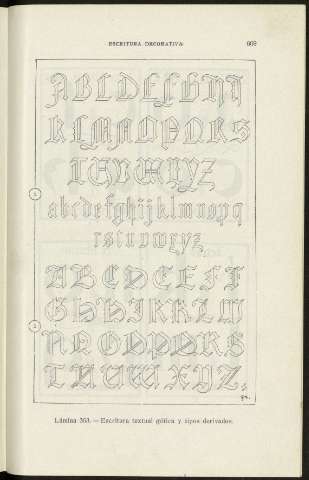 ESCRITURA DECORATIVA 609
A B C D E F G H I
K L M M N O P Q R S
T U V W X Y Z
1
a b c d e f g h i j k l m n o p q
r s t u v w x y z
A B C D E F I
G H H I K K L M
2
N O O P Q R S
T U U W X Y Z
Lámina 363. — Escritura textual gótica y tipos derivados.